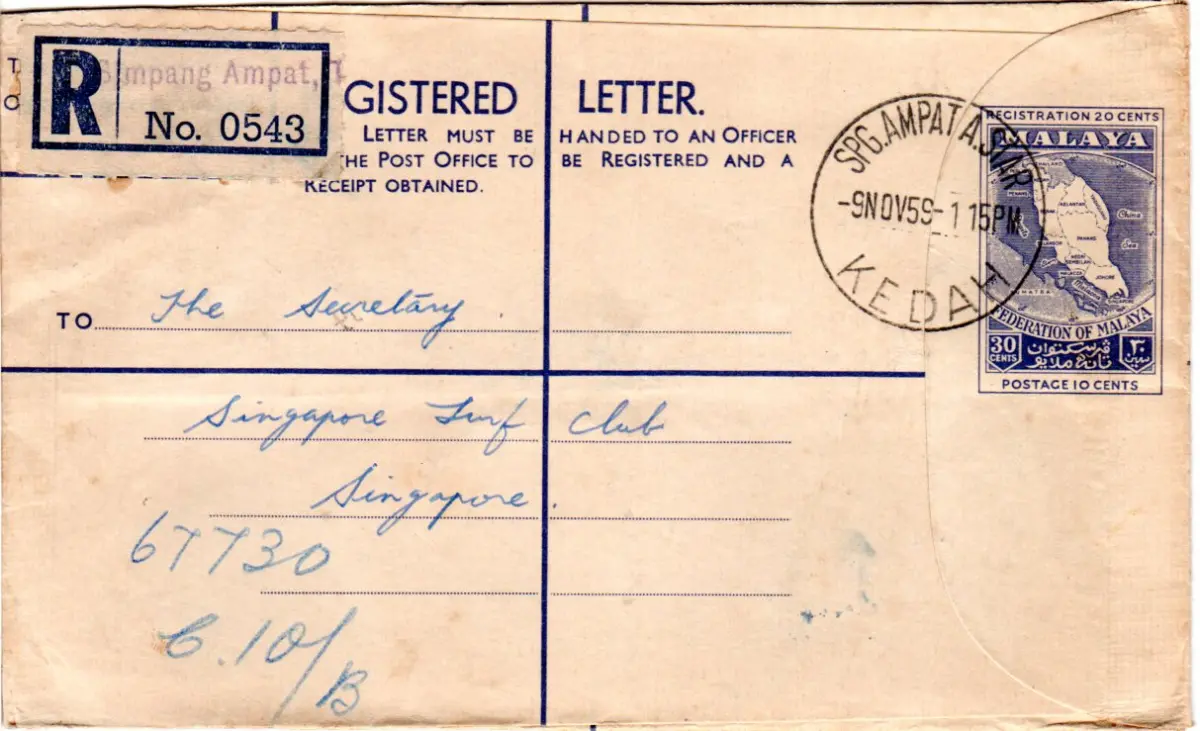 R
Simpang Ampat,
No. 0543
T
O
GISTERED LETTER.
LETTER MUST BE HANDED TO AN OFFICER
THE POST OFFICE TO BE REGISTERED AND A
RECEIPT OBTAINED.
SPG.AMPAT A.STAR
-9NOV59-1 15PM
KEDAH
REGISTRATION 20 CENTS
MALAYA
THAILAND
KELANTAN
PAHANG
JOHORE
China
Sea
SUMATRA
FEDERATION OF MALAYA
30
CENTS
ڤرسكتوان
تانه ملايو
٣٠
سين
POSTAGE 10 CENTS
TO The Secretary
Singapore Turf Club
Singapore.
67730
C.10/B